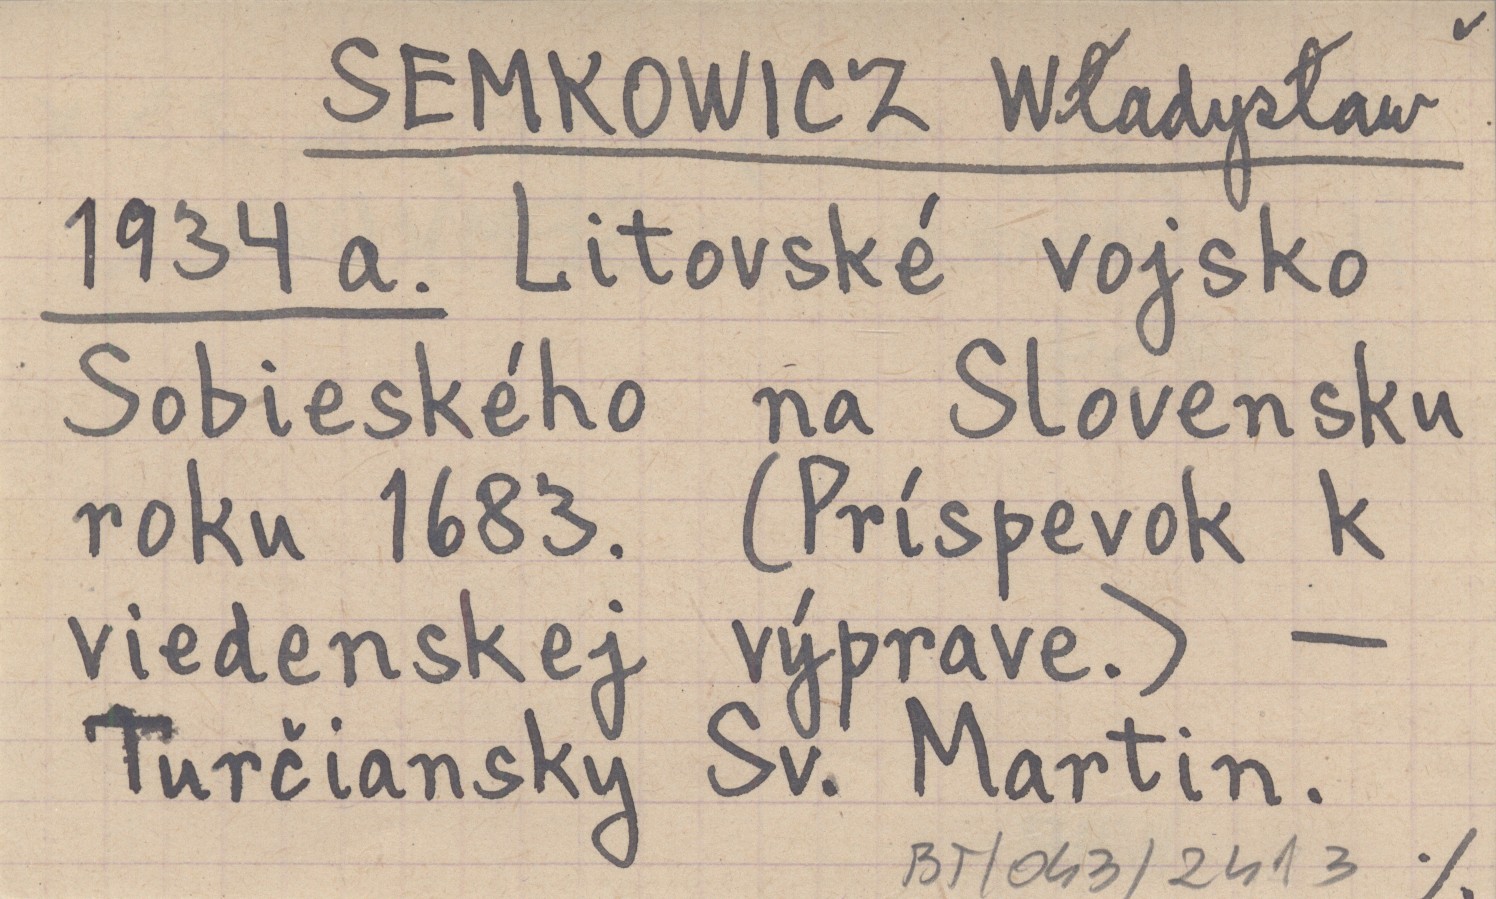 SEMKOWICZ Władysław
1934 a. Litovské vojsko
Sobieského na Slovensku
roku 1683. (Príspevok k
viedenskej výprave.) —
Turčiansky Sv. Martin.
BT/043/2413 ./.